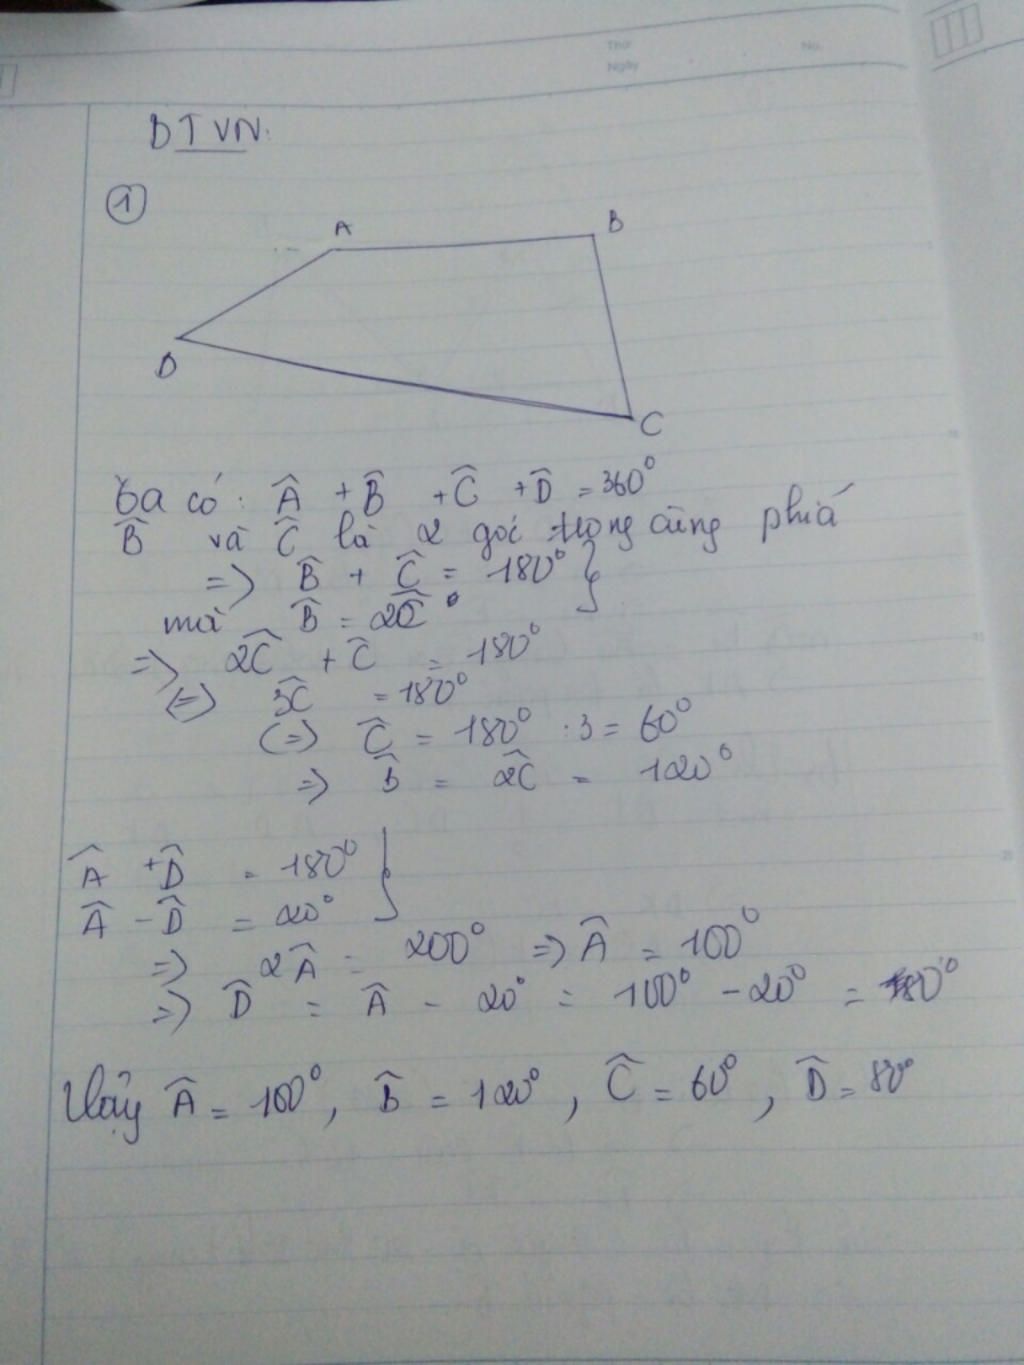 Thứ No.
Ngày
BTVN:
1
A B
D
C
Ta có: Â + B̂ + Ĉ + D̂ = 360°
B̂ và Ĉ là 2 góc trong cùng phía
=> B̂ + Ĉ = 180° }
mà B̂ = 2Ĉ
=> 2Ĉ + Ĉ = 180°
<=> 3Ĉ = 180°
<=> Ĉ = 180° : 3 = 60°
=> B̂ = 2Ĉ = 120°
Â + D̂ = 180° }
Â - D̂ = 20°
=> 2Â = 200° => Â = 100°
=> D̂ = Â - 20° = 100° - 20° = 80°
Vậy Â = 100°, B̂ = 120°, Ĉ = 60°, D̂ = 80°